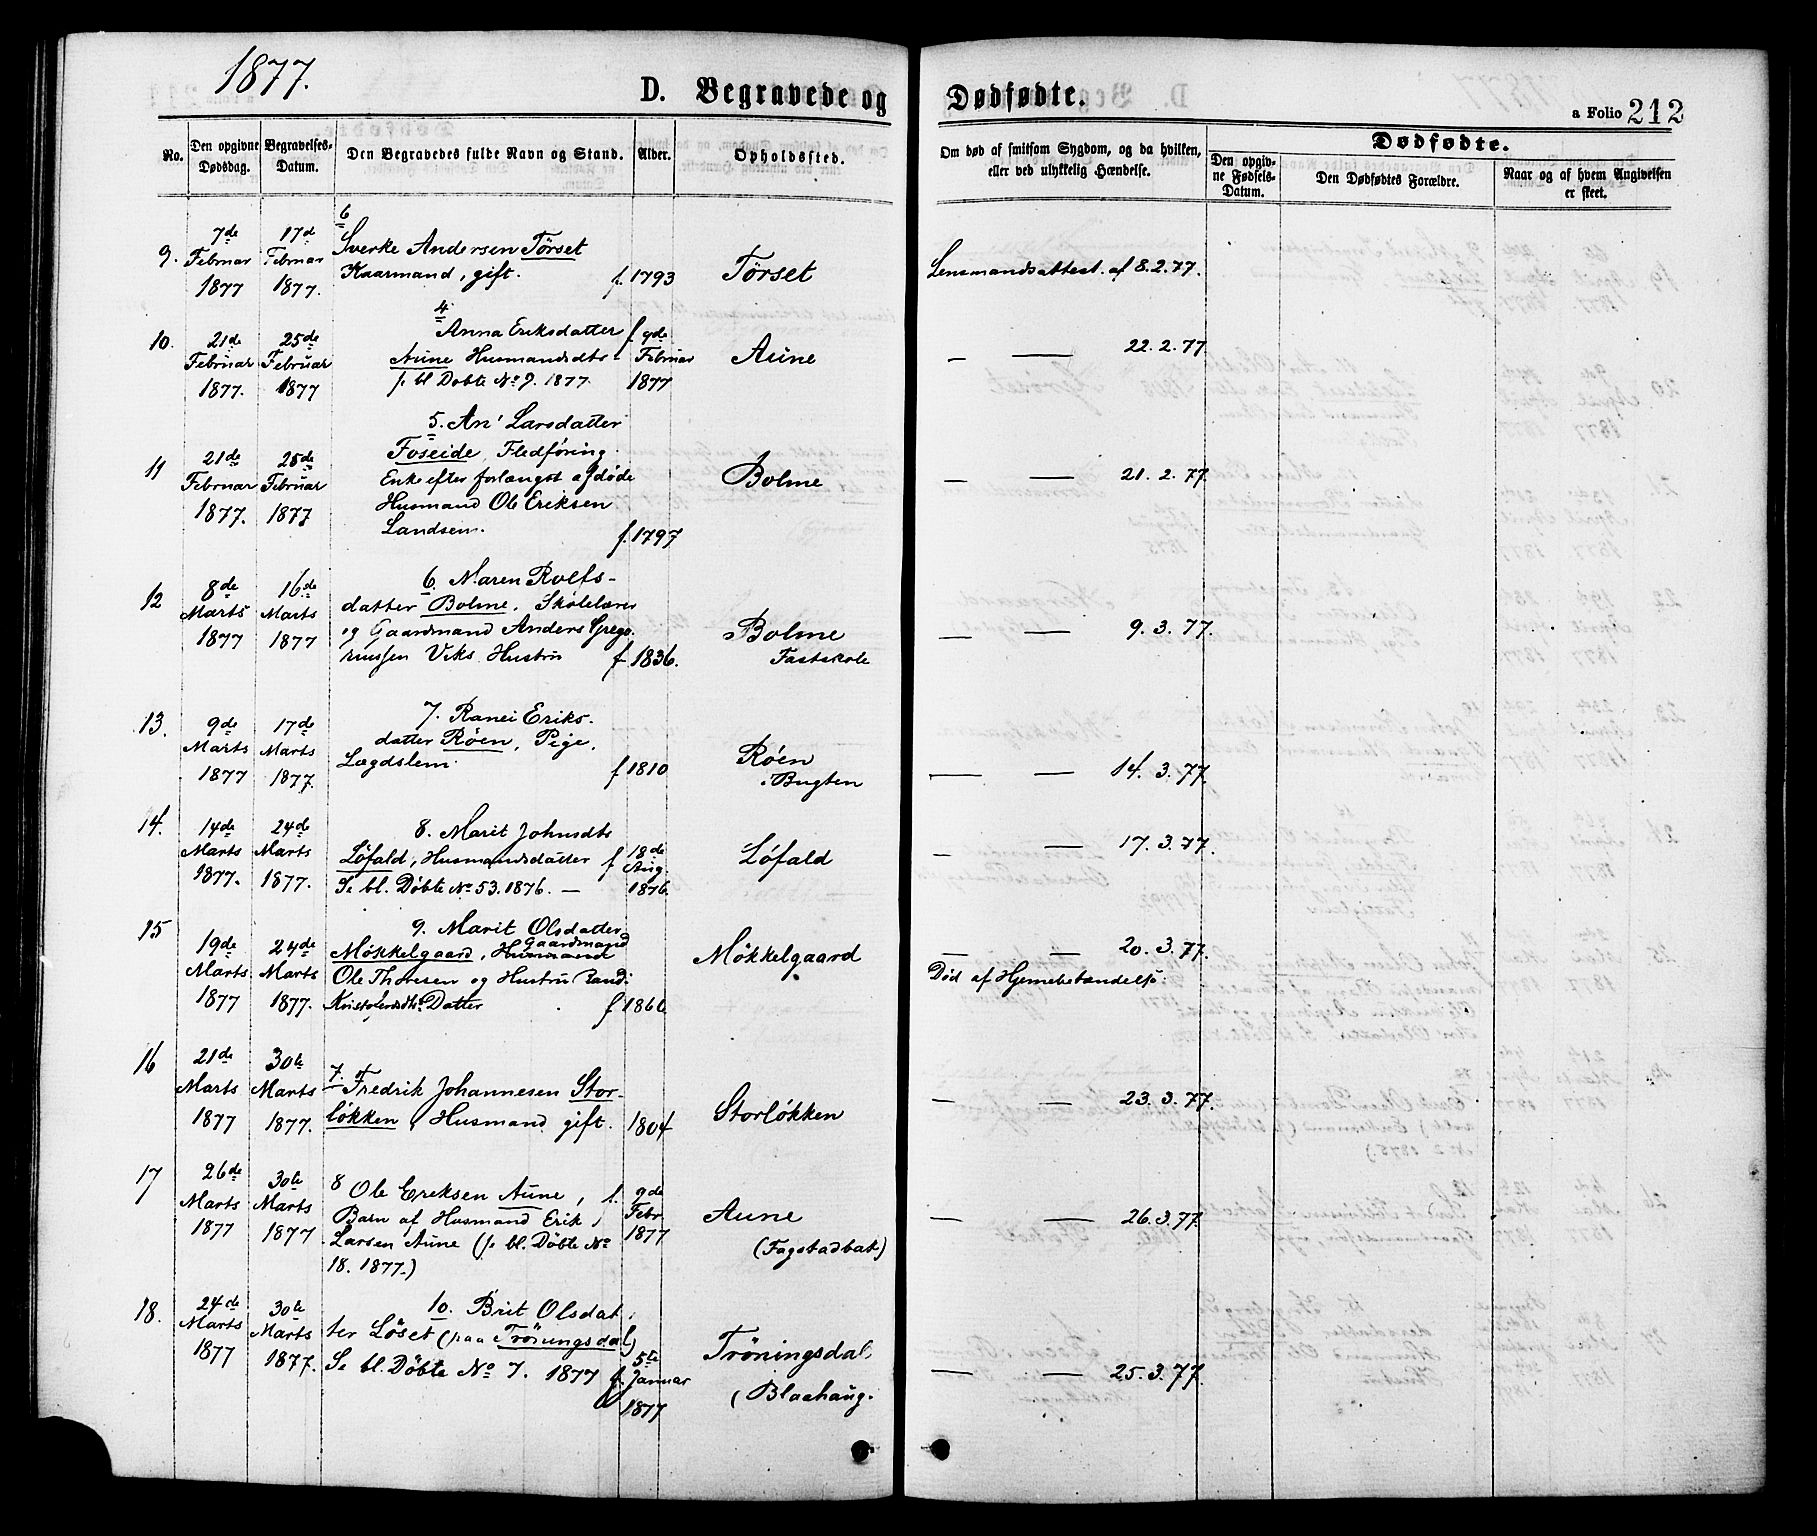 1877.
D. Begravede og Dødfødte.
a Folio 212
No.
Den opgivne Dødsdag.
Begravelses-Datum.
Den Begravedes fulde Navn og Stand.
Alder.
Opholdssted.
Om død af smitsom Sygdom, og da hvilken, eller ved ulykkelig Hændelse.
Dødfødte.
Den opgivne Fødsels-Datum.
Den Dødfødtes Forældre.
Naar og af hvem Angivelsen er skeet.
9.
7de Februar 1877
17d Februar 1877.
6
Sverke Andersen Tørset
Kaarmand, gift.
f. 1793
Tørset
Lensmandsattest. af 8.2.77.
10.
21de Februar 1877.
25de Februar 1877
4
Anna Eriksdatter
Aune Husmandsdts
s. bl Døbte No 9. 1877.
f 9de Februar 1877
Aune
— — 22.2.77.
11
21de Februar 1877.
25de Februar 1877
5. An' Larsdatter
Foseide, Fledføring.
Enke efter forlængst afdøde
Husmand Ole Eriksen
Landsem.
f. 1797
Bolme
— — 21.2.77.
12
8de Marts 1877
16de Marts 1877
6. Maren Rolfs-
datter Bolme, Skolelærer
og Gaardmand Anders Grego-
riussen Viks Hustru
f. 1836.
Bolme
Fastskole
— — 9.3.77.
13.
9de Marts 1877
17de Marts 1877.
7. Ranei Eriks-
datter Røen, Pige,
Lægdslem.
f 1810
Røen
i Bugten
— — 14.3.77.
14.
14de Marts 1877.
24de Marts 1877.
8. Marit Johnsdts
Løfald, Husmandsdatter
Se bl. Døbte No 53. 1876. —
f 18de Aug. 1876.
Løfald
— — 17.3.77.
15
19de Marts 1877
24de Marts 1877.
9. Marit Olsdatter
Gaardmand
Møkkelgaard, Husmand
Ole Thoresen og Hustru Rand.
Datter
f 1866
Møkkelgaard
— — 20.3.77.
Død af Hjernebetændelse.
16
21de Marts 1877
30te Marts 1877.
7.
Fredrik Johannesen Stor-
løkken, Husmand gift.
1804
Storløkken
— — 23.3.77.
17
26de Marts 1877
30te Marts 1877
8 Ole Eriksen Aune,
Barn af Husmand Erik
Larsen Aune (s. bl. Døbte No
18. 1877.)
f. 9de Febr 1877
Aune
(Fagstadbak)
— — 26.3.77.
18.
24de Marts 1877
30te Marts 1877.
10. Brit Olsdat
ter Løset (paa Trøningsdal)
Se bl. Døbte No 7. 1877
f. 5te Januar 1877
Trøningsdal,
(Blaahaug.
— — 25.3.77.